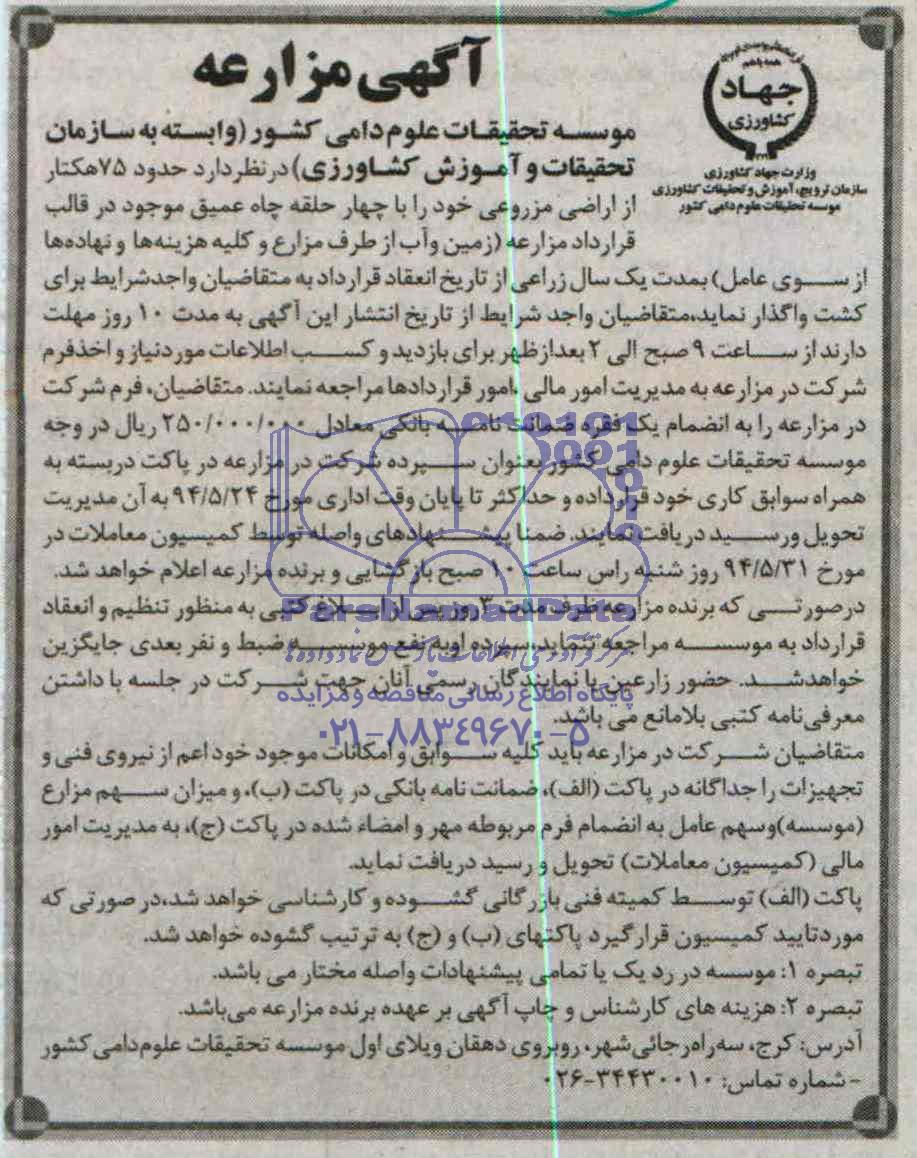 آگهی مزارعه
همه با هم
جهاد
کشاورزی
وزارت جهاد کشاورزی
سازمان ترویج، آموزش و تحقیقات کشاورزی
موسسه تحقیقات علوم دامی کشور
موسسه تحقیقات علوم دامی کشور (وابسته به سازمان
تحقیقات و آموزش کشاورزی) در نظر دارد حدود ۷۵ هکتار
از اراضی مزروعی خود را با چهار حلقه چاه عمیق موجود در قالب
قرارداد مزارعه (زمین وآب از طرف مزارع و کلیه هزینه‌ها و نهاده‌ها
از سوی عامل) بمدت یک سال زراعی از تاریخ انعقاد قرارداد به متقاضیان واجدشرایط برای
کشت واگذار نماید،متقاضیان واجد شرایط از تاریخ انتشار این آگهی به مدت ۱۰ روز مهلت
دارند از ساعت ۹ صبح الی ۲ بعدازظهر برای بازدید و کسب اطلاعات موردنیاز و اخذفرم
شرکت در مزارعه به مدیریت امور مالی ،امور قراردادها مراجعه نمایند. متقاضیان، فرم شرکت
در مزارعه را به انضمام یک فقره ضمانت نامه بانکی معادل ۲۵۰/۰۰۰/۰۰۰ ریال در وجه
موسسه تحقیقات علوم دامی کشور بعنوان سپرده شرکت در مزارعه در پاکت دربسته به
همراه سوابق کاری خود قرارداده و حداکثر تا پایان وقت اداری مورخ ۹۴/۵/۲۴ به آن مدیریت
تحویل ورسید دریافت نمایند. ضمنا پیشنهادهای واصله توسط کمیسیون معاملات در
مورخ ۹۴/۵/۳۱ روز شنبه راس ساعت ۱۰ صبح بازگشایی و برنده مزارعه اعلام خواهد شد.
درصورتی که برنده مزارعه ظرف مدت ۳ روز پس از ابلاغ کتبی به منظور تنظیم و انعقاد
قرارداد به موسسه مراجعه ننماید،سپرده اوبه نفع موسسه ضبط و نفر بعدی جایگزین
خواهدشد. حضور زارعین یا نمایندگان رسمی آنان جهت شرکت در جلسه با داشتن
معرفی‌نامه کتبی بلامانع می باشد.
متقاضیان شرکت در مزارعه باید کلیه سوابق و امکانات موجود خود اعم از نیروی فنی و
تجهیزات را جداگانه در پاکت (الف)، ضمانت نامه بانکی در پاکت (ب)، و میزان سهم مزارع
(موسسه)وسهم عامل به انضمام فرم مربوطه مهر و امضاء شده در پاکت (ج)، به مدیریت امور
مالی (کمیسیون معاملات) تحویل و رسید دریافت نماید.
پاکت (الف) توسط کمیته فنی بازرگانی گشوده و کارشناسی خواهد شد،در صورتی که
موردتایید کمیسیون قرارگیرد پاکتهای (ب) و (ج) به ترتیب گشوده خواهد شد.
تبصره ۱: موسسه در رد یک یا تمامی پیشنهادات واصله مختار می باشد.
تبصره ۲: هزینه های کارشناس و چاپ آگهی بر عهده برنده مزارعه می‌باشد.
آدرس: کرج، سه‌راه‌رجائی‌شهر، روبروی دهقان ویلای اول موسسه تحقیقات علوم‌دامی کشور
- شماره تماس: ۳۴۴۳۰۰۱۰-۰۲۶
ParsNamadData
پایگاه اطلاع رسانی مناقصه و مزایده
۰۲۱-۸۸۳۴۹۶۷۰-۵